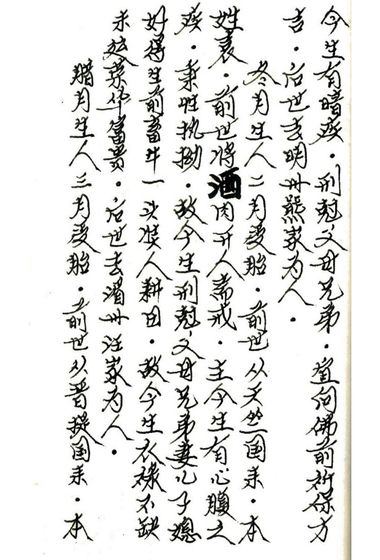 今生有暗疾·刑尅父母兄弟·宜向佛前祈保方
吉·后世去明州熊家为人·
冬月生人二月受胎·前世从天竺国来·本
姓袁·前世将酒肉开人斋戒·主今生有心腹之
疾·秉性执拗·故今生刑尅父母兄弟妻儿子媳
好得生前畜牛一头借人耕田·故今生衣禄不缺
来处荣华富贵·后世去湄州汪家为人·
腊月生人三月受胎·前世从普提国来·本